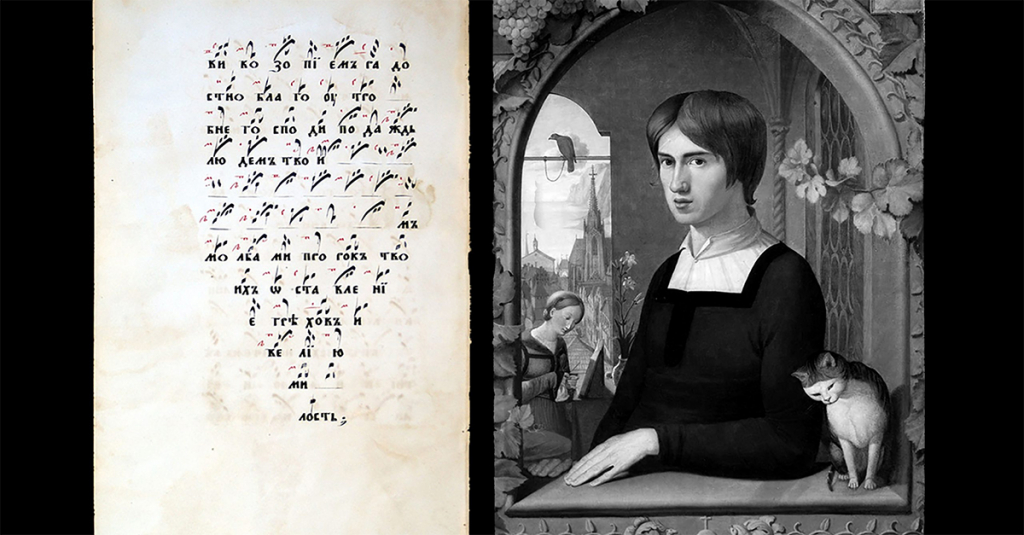 ви ко зо пі емъ га до
стно бла го оу тро
бне го спо ди по да ждь
лю дем тво и
мъ
мо лба ми про рокъ тво
ихъ ѡ ста вле нії
е грѣ ховъ и
ве лі ю
ми
лость;